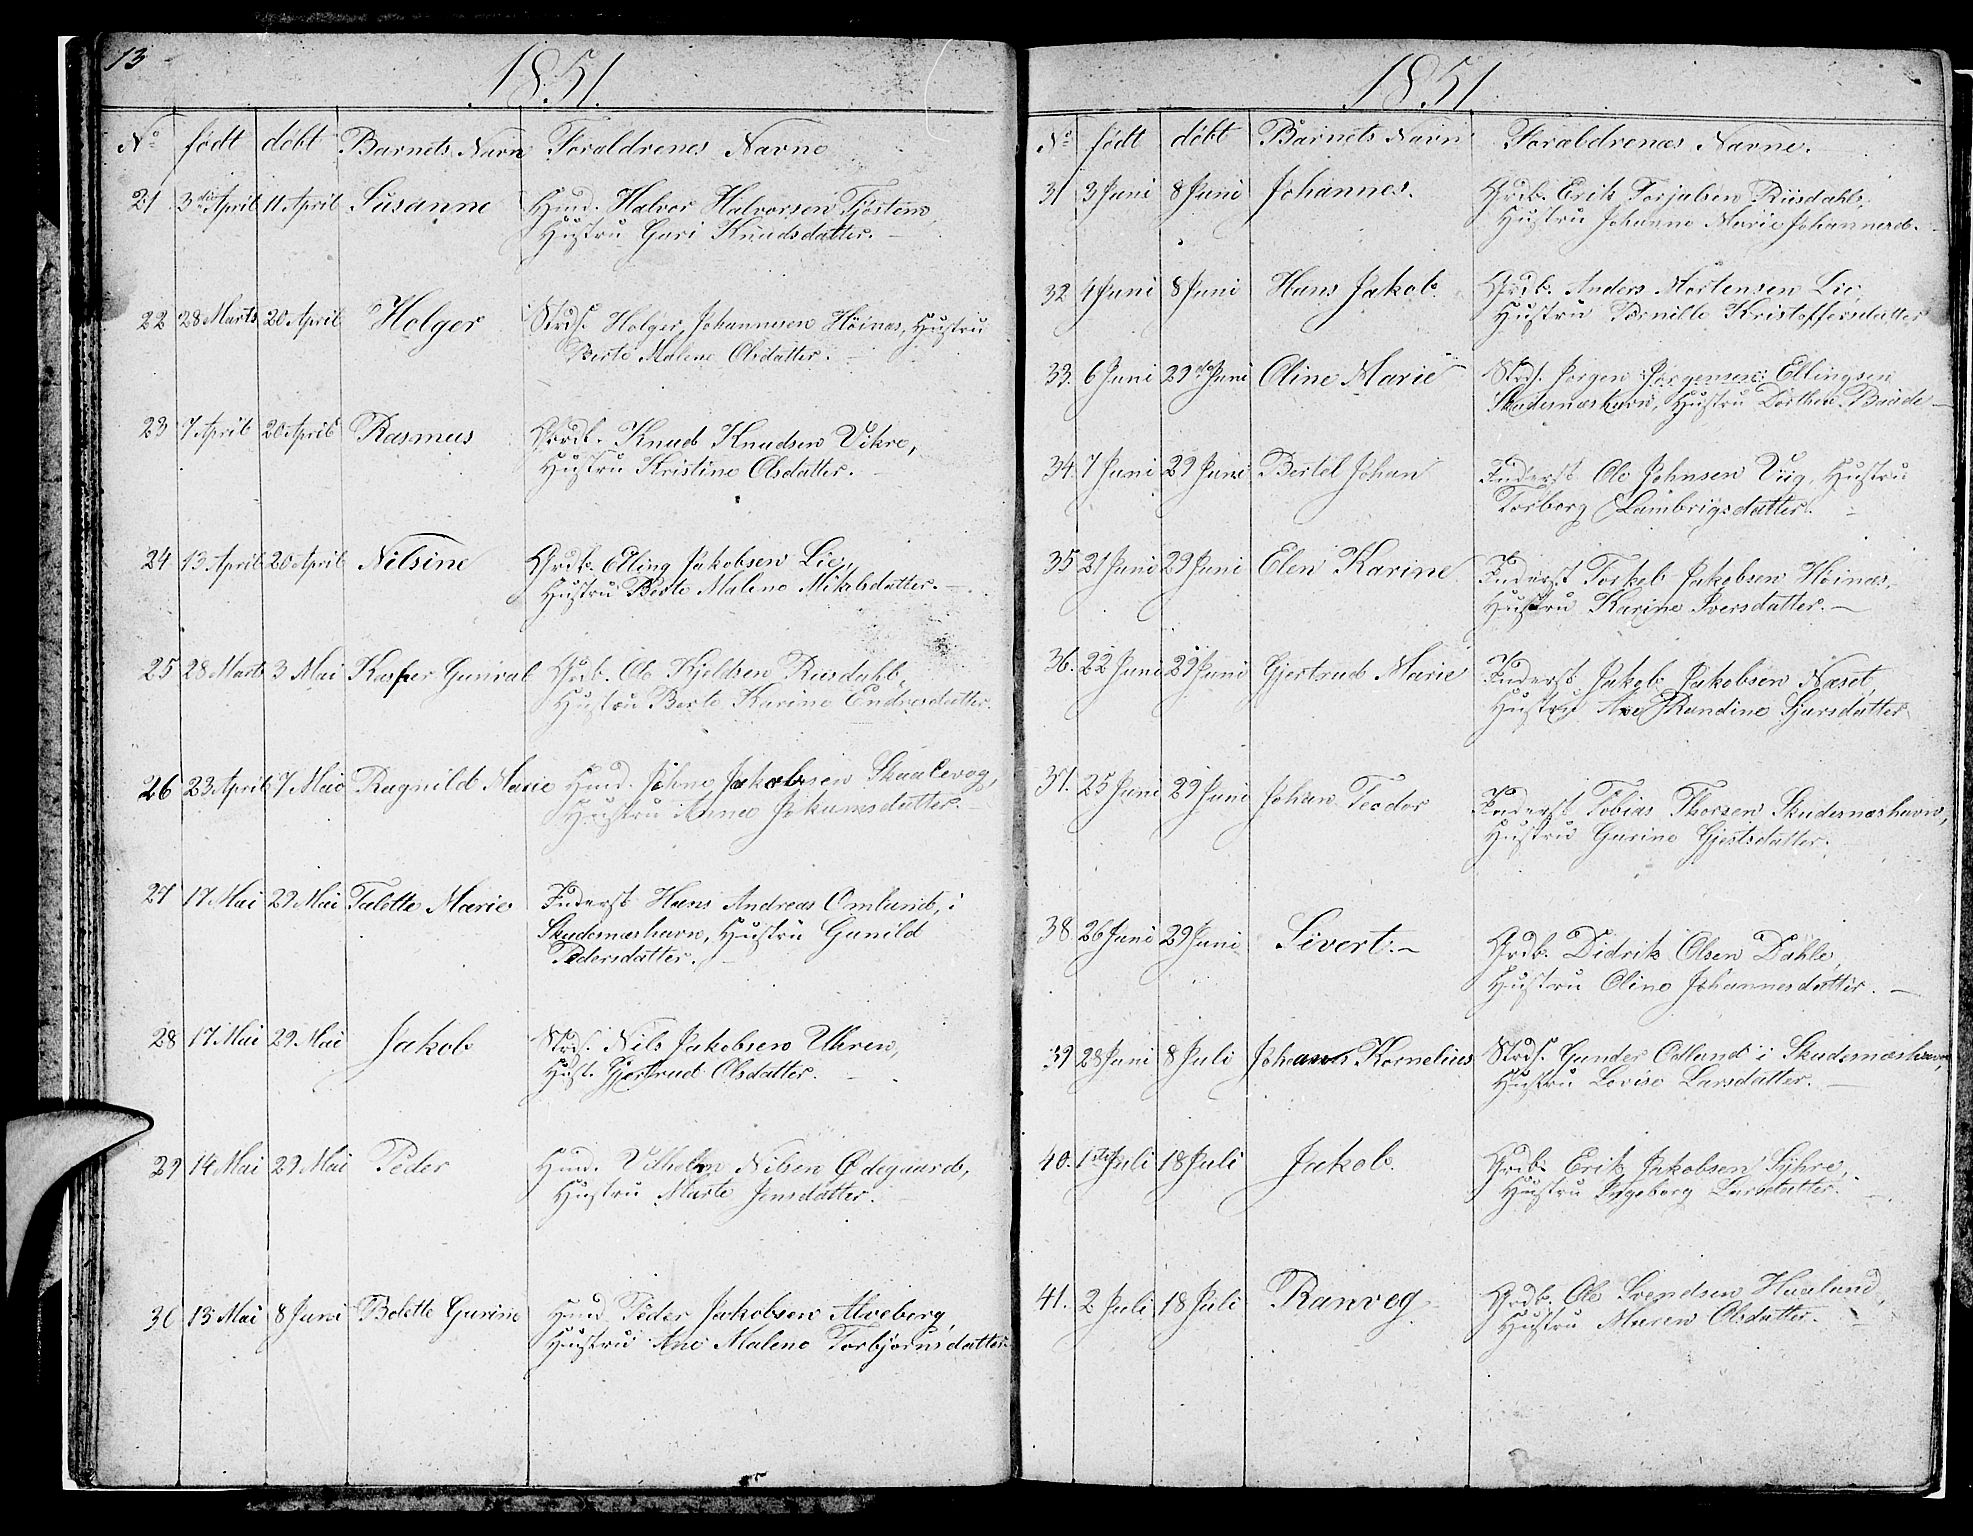 13
1851.
No født døbt Barnets Navn Forældrenes Navne
21 3die April 11 April Susanne Huusmd. Halvor Halvorsen Fjösteno,
Hustru Guri Knudsdatter.
22 28 Marts 20 April Holger Strds. Holger Johannesen Höinæs, Hustru
Berte Malene Olsdatter.
23 7 April 20 April Rasmus Grdb. Knud Knudsen Vikre,
Hustru Kristine Olsdatter.
24 13 April 20 April Nilsine Grdb. Elling Jakobsen Lie,
Hustru Berte Malene Mikelsdatter.
25 28 Marts 3 Mai Kasper Gunval Grdb. Ole Kjeldsen Risdahl,
Hustru Berte Karine Endresdatter.
26 23 April 7 Mai Ragnild Marie Hmd. Johne Jakobsen Skaalevog,
Hustru Anne Jokumsdatter.
27 17 Mai 29 Mai Talette Marie Inderst Hans Andreas Omlund, i
Skudesnæshavn, Hustru Gunild
Pedersdatter.
28 17 Mai 29 Mai Jakob Strds. Nils Jakobsen Uhren,
Hust. Gjertrud Olsdatter.
29 14 Mai 29 Mai Peder Hmd. Vilhelm Nilsen Ødegaard,
Hustru Marte Jensdatter.
30 13 Mai 8 Juni Bolette Gurine Hmd Peder Jakobsen Alveberg,
Hustru Ane Malene Torbjörnsdatter.
1851
No født døbt Barnets Navn Forældrenes Navne.
31 3 Juni 8 Juni Johannes. Grdb. Erik Torjulsen Risdahl,
Hustru Johanne Marie Johannesd.
32 4 Juni 8 Juni Hans Jakob. Grdb. Anders Mortensen Lie,
Hustru Pernille Kristoffersdatter
33. 6 Juni 29de Juni Oline Marie Strds. Jörgen Jörgensen Ellingsen
Skudesnæshavn, Hustru Dorthea Baade
34. 7 Juni 29 Juni Bertel Johan Inderst Ole Johnsen Viig, Hustru
Torborg Lambrigsdatter.
35 21 Juni 29 Juni Elen Karine Inderst Torkel Jakobsen Höinæs,
Hustru Karine Iversdatter.
36. 22 Juni 29 Juni Gjertrud Marie Inderst Jakob Jakobsen Næset,
Hustru Ane Randine Sjursdatter
37. 25 Juni 29 Juni Johan Teodor Inderst Tobias Thorsen Skudesnæshavn,
Hustru Gurine Gjertsdatter.
38 26 Juni 29 Juni Sivert. Grdb. Didrik Olsen Dahle,
Hustru Oline Johannesdatter.
39 28 Juni 8 Juli Johannes Kornelius Strds. Gunder Odland i Skudesnæshavn,
Hustru Lovise Larsdatter.
40. 1ste Juli 18 Juli Jakob. Grdb. Erik Jakobsen Syhre,
Hustru Ingeborg Larsdatter.
41. 2 Juli 18 Juli Ranveg Grdb. Ole Svendsen Haaland,
Hustru Maren Olsdatter.